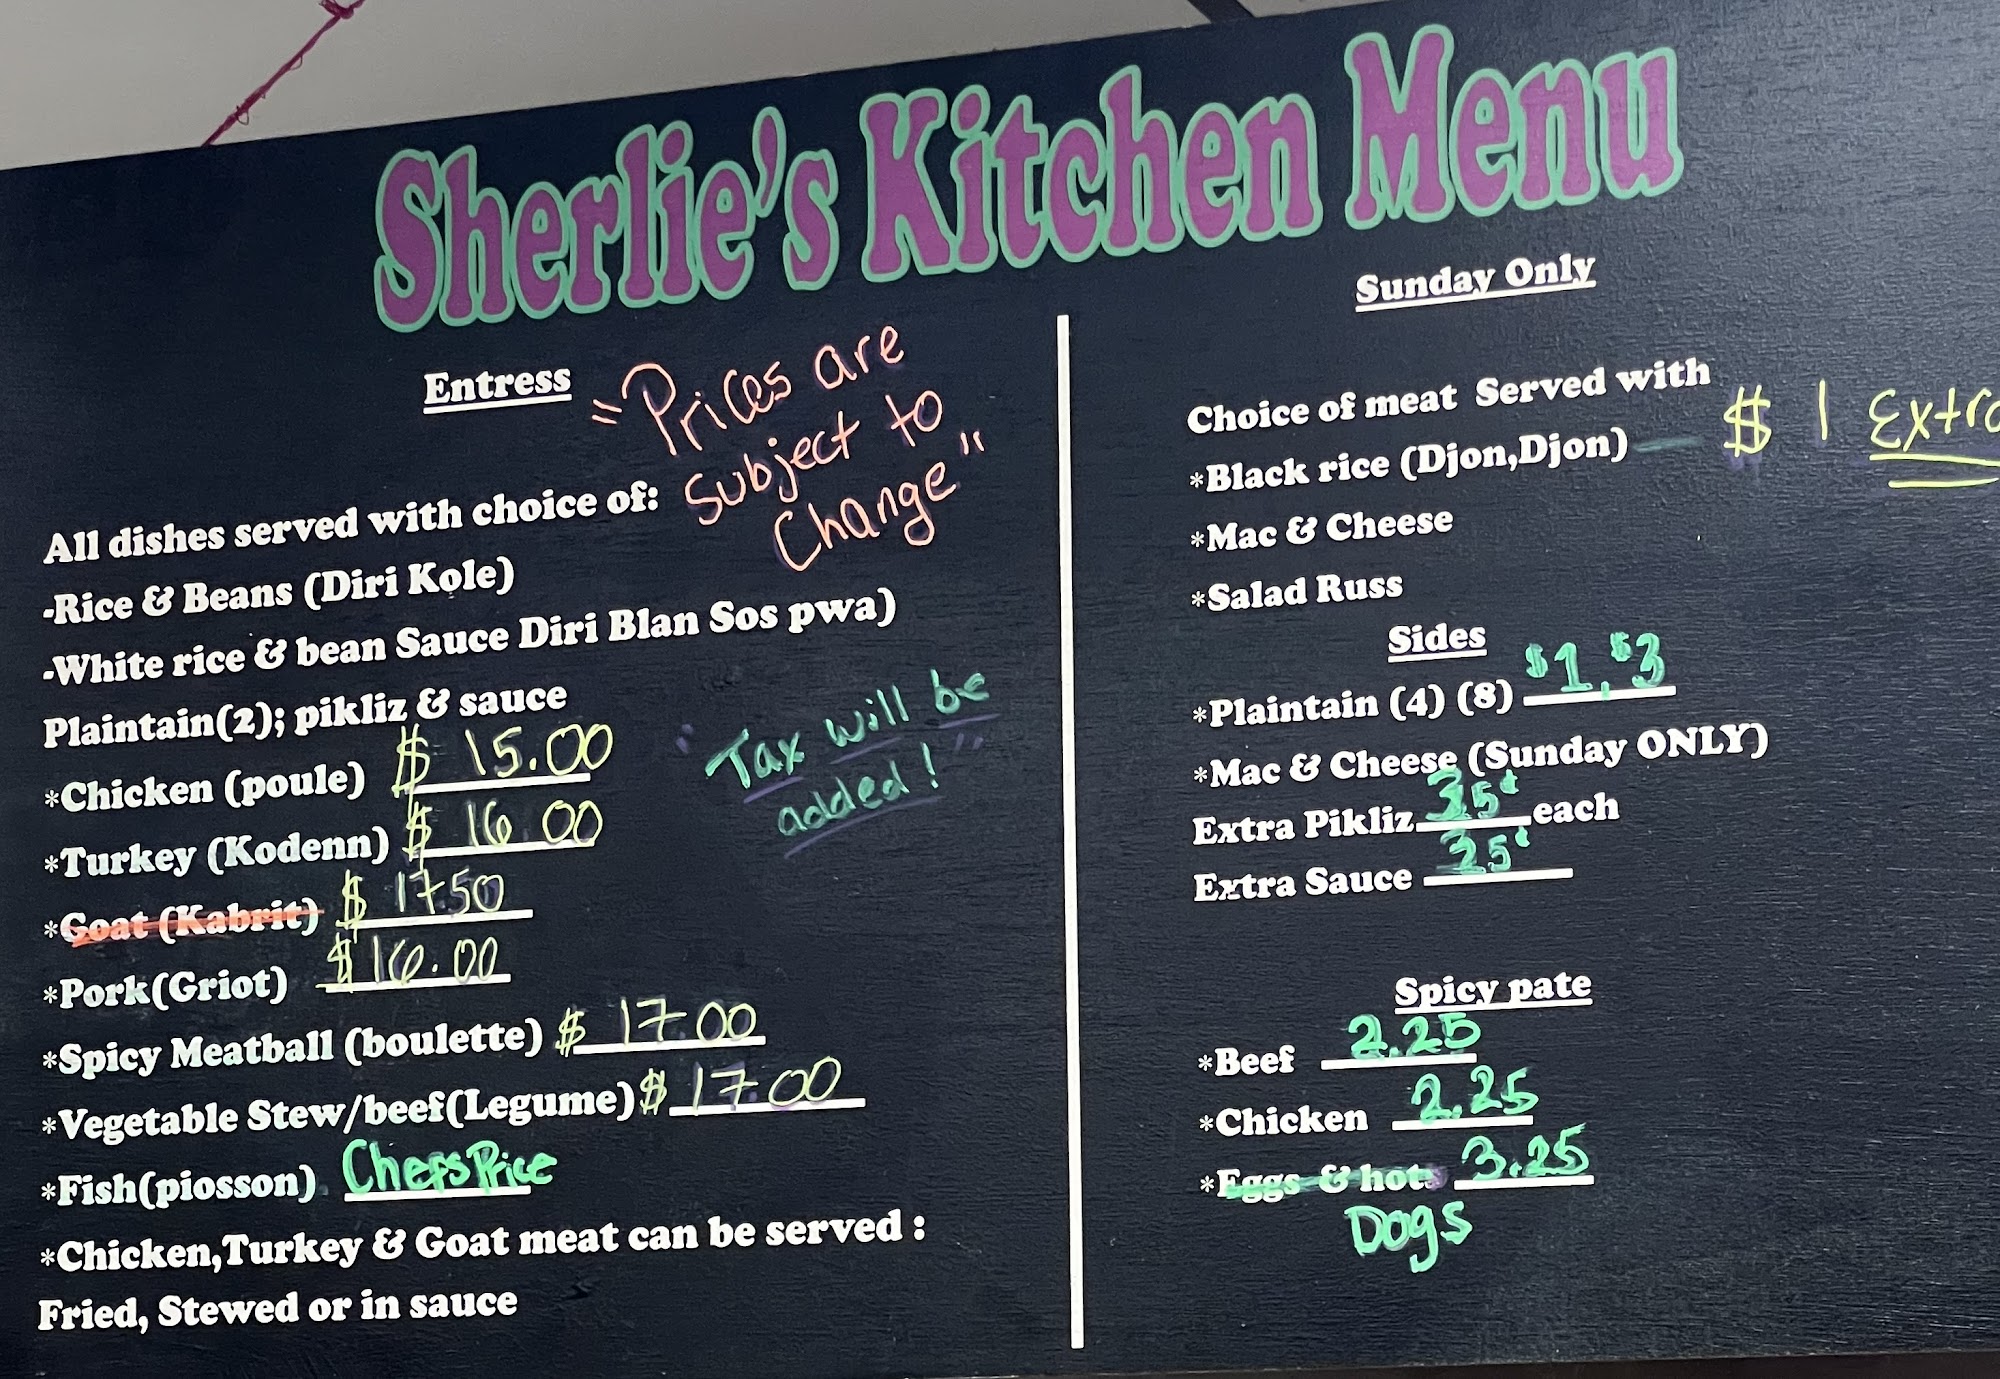 Sherlie's Kitchen Menu
Entress
"Prices are
subject to
Change"
All dishes served with choice of:
-Rice & Beans (Diri Kole)
-White rice & bean Sauce Diri Blan Sos pwa)
Plaintain(2); pikliz & sauce
*Chicken (poule) $ 15.00
*Turkey (Kodenn) $ 16.00
*Goat (Kabrit) $ 17.50
*Pork(Griot) $16.00
*Spicy Meatball (boulette) $ 17.00
*Vegetable Stew/beef(Legume) $ 17.00
*Fish(piosson) Chefs Price
*Chicken,Turkey & Goat meat can be served :
Fried, Stewed or in sauce
"Tax will be
added!"
Sunday Only
Choice of meat Served with
*Black rice (Djon,Djon) — $ 1 Extra
*Mac & Cheese
*Salad Russ
Sides
*Plaintain (4) (8) $1, $3
*Mac & Cheese (Sunday ONLY)
Extra Pikliz each
Extra Sauce
Spicy pate
*Beef 2.25
*Chicken 2.25
*Eggs & hot 3.25
Dogs